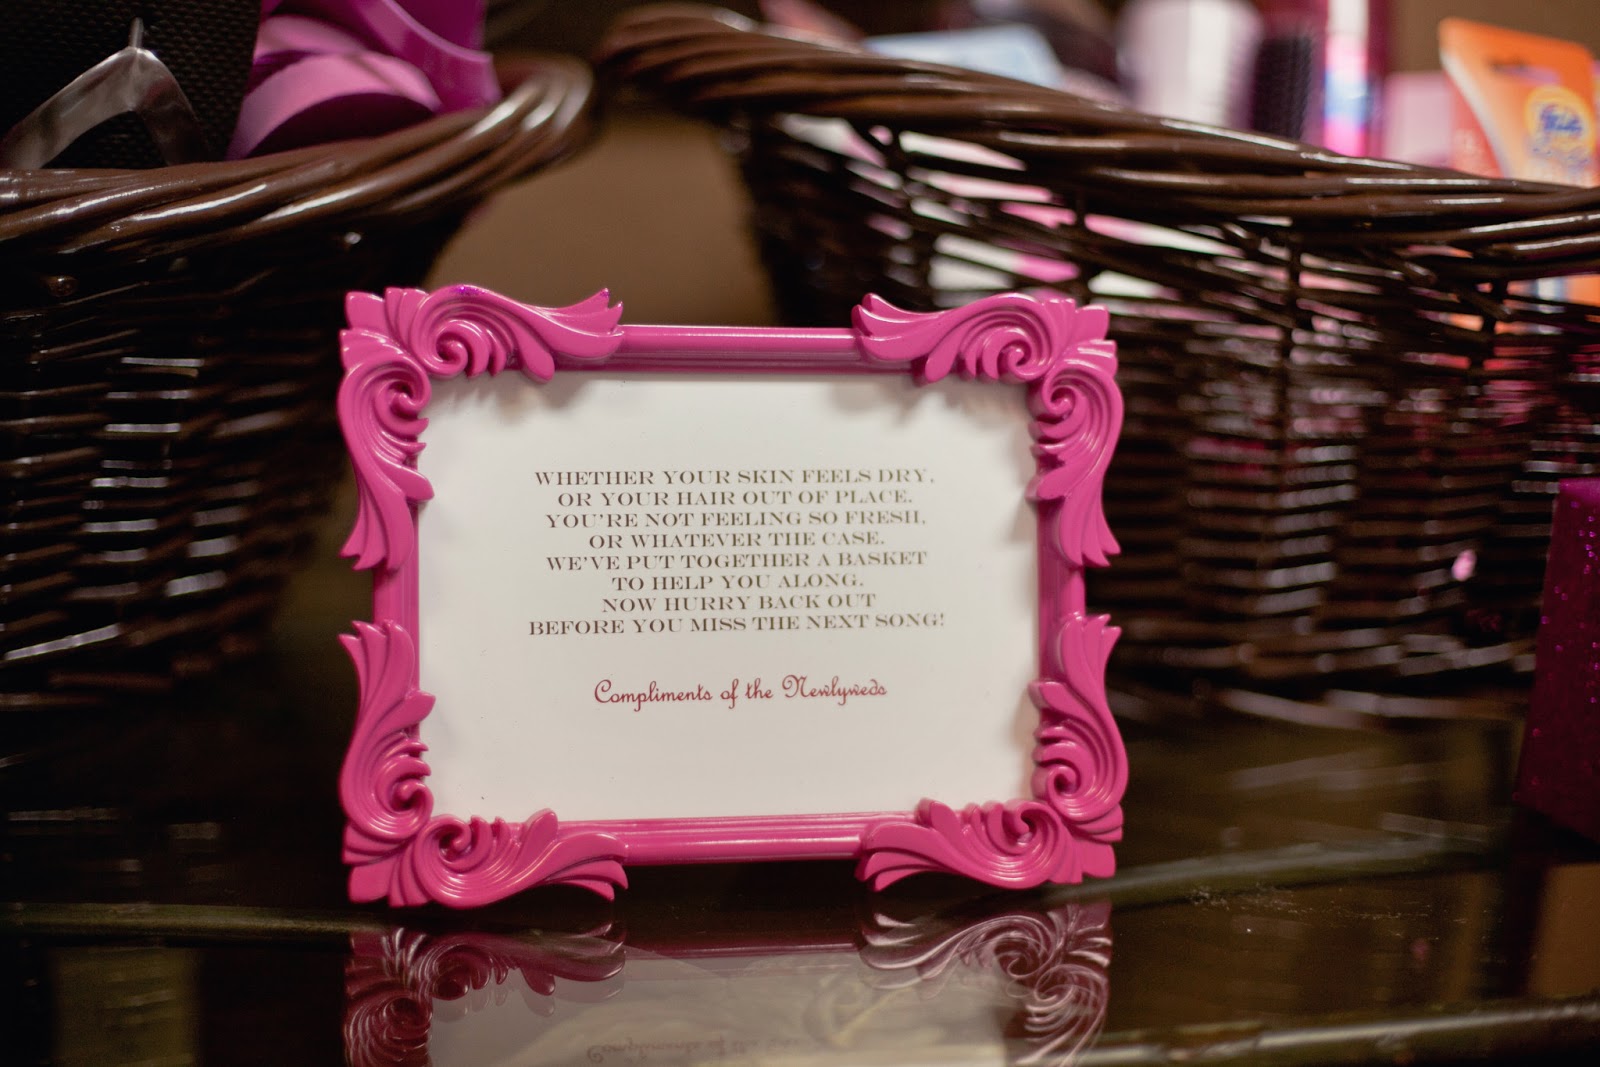 WHETHER YOUR SKIN FEELS DRY,
OR YOUR HAIR OUT OF PLACE.
YOU'RE NOT FEELING SO FRESH,
OR WHATEVER THE CASE.
WE'VE PUT TOGETHER A BASKET
TO HELP YOU ALONG.
NOW HURRY BACK OUT
BEFORE YOU MISS THE NEXT SONG!
Compliments of the Newlyweds
Tide